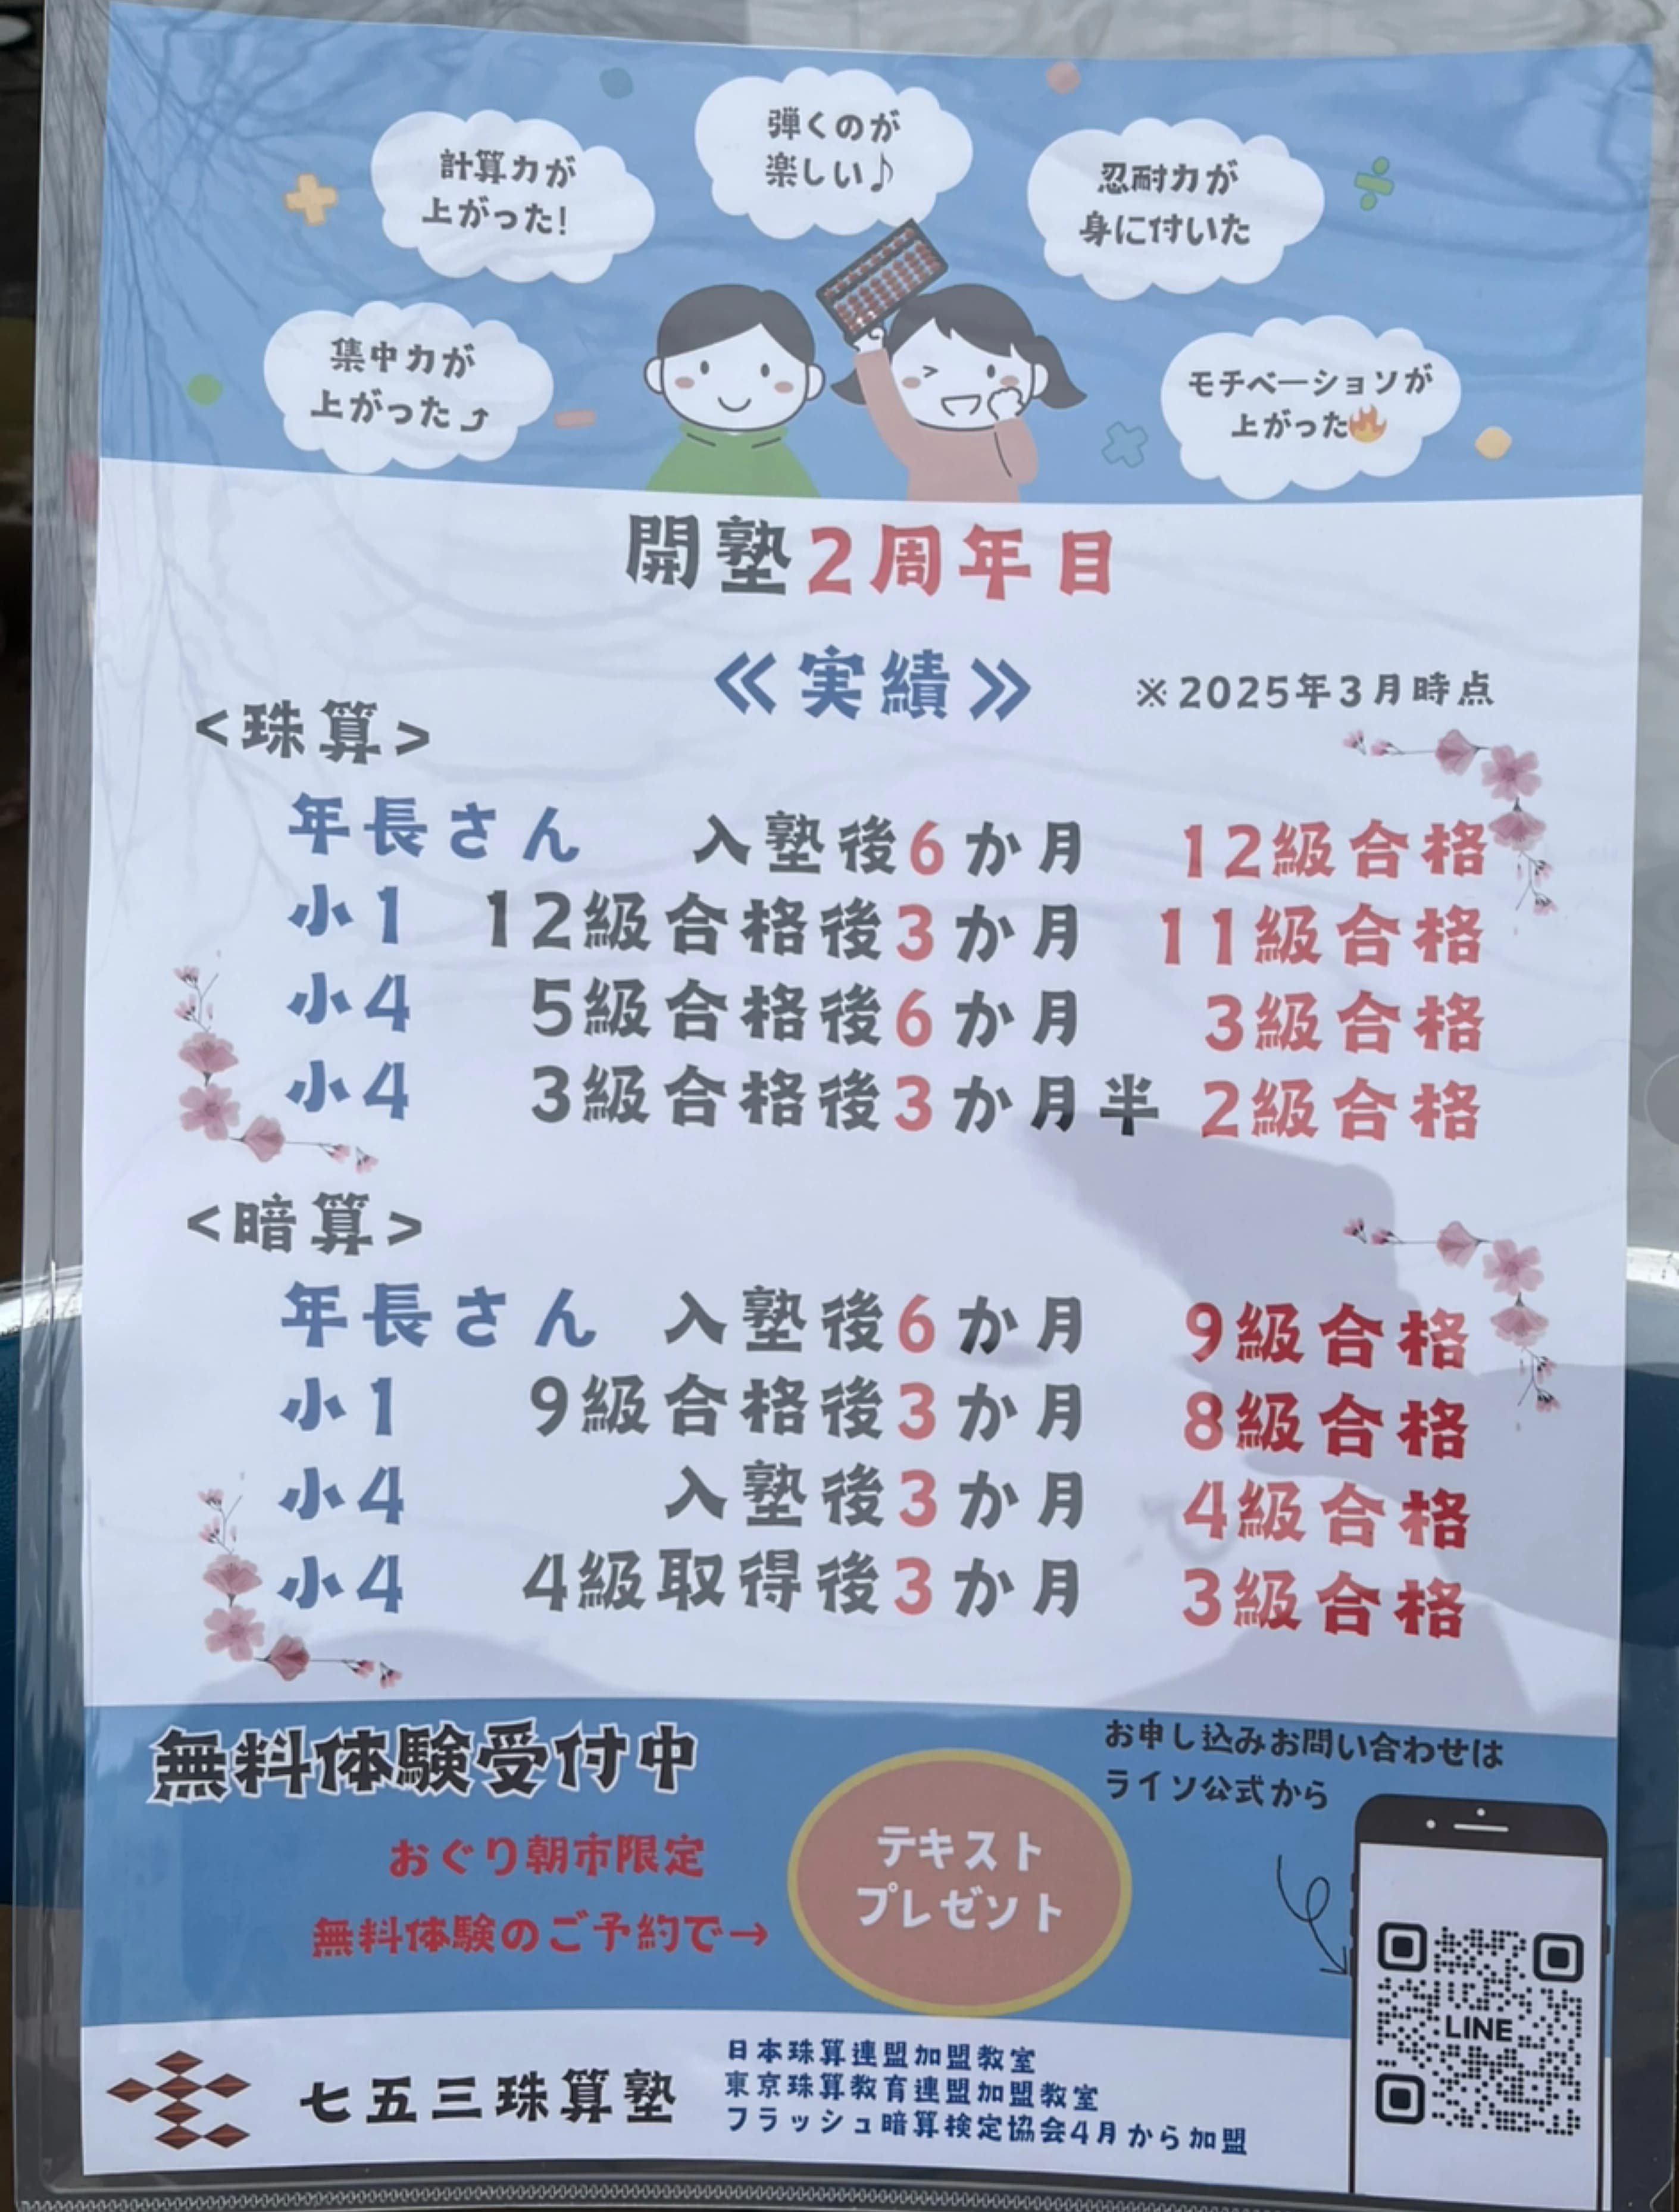 弾くのが
楽しい♪
計算力が
上がった!
忍耐力が
身に付いた
集中力が
上がった⤴
モチベーションが
上がった🔥
開塾2周年目
≪実績≫ ※2025年3月時点
<珠算>
年長さん 入塾後6か月 12級合格
小1 12級合格後3か月 11級合格
小4 5級合格後6か月 3級合格
小4 3級合格後3か月半 2級合格
<暗算>
年長さん 入塾後6か月 9級合格
小1 9級合格後3か月 8級合格
小4 入塾後3か月 4級合格
小4 4級取得後3か月 3級合格
無料体験受付中
おぐり朝市限定
無料体験のご予約で→
テキスト
プレゼント
お申し込みお問い合わせは
ライン公式から
LINE
七五三珠算塾
日本珠算連盟加盟教室
東京珠算教育連盟加盟教室
フラッシュ暗算検定協会4月から加盟